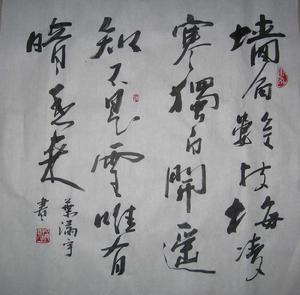 墙角數枝梅凌
寒獨自開遥
知不是雪唯有
暗香来
葉滿宇
書